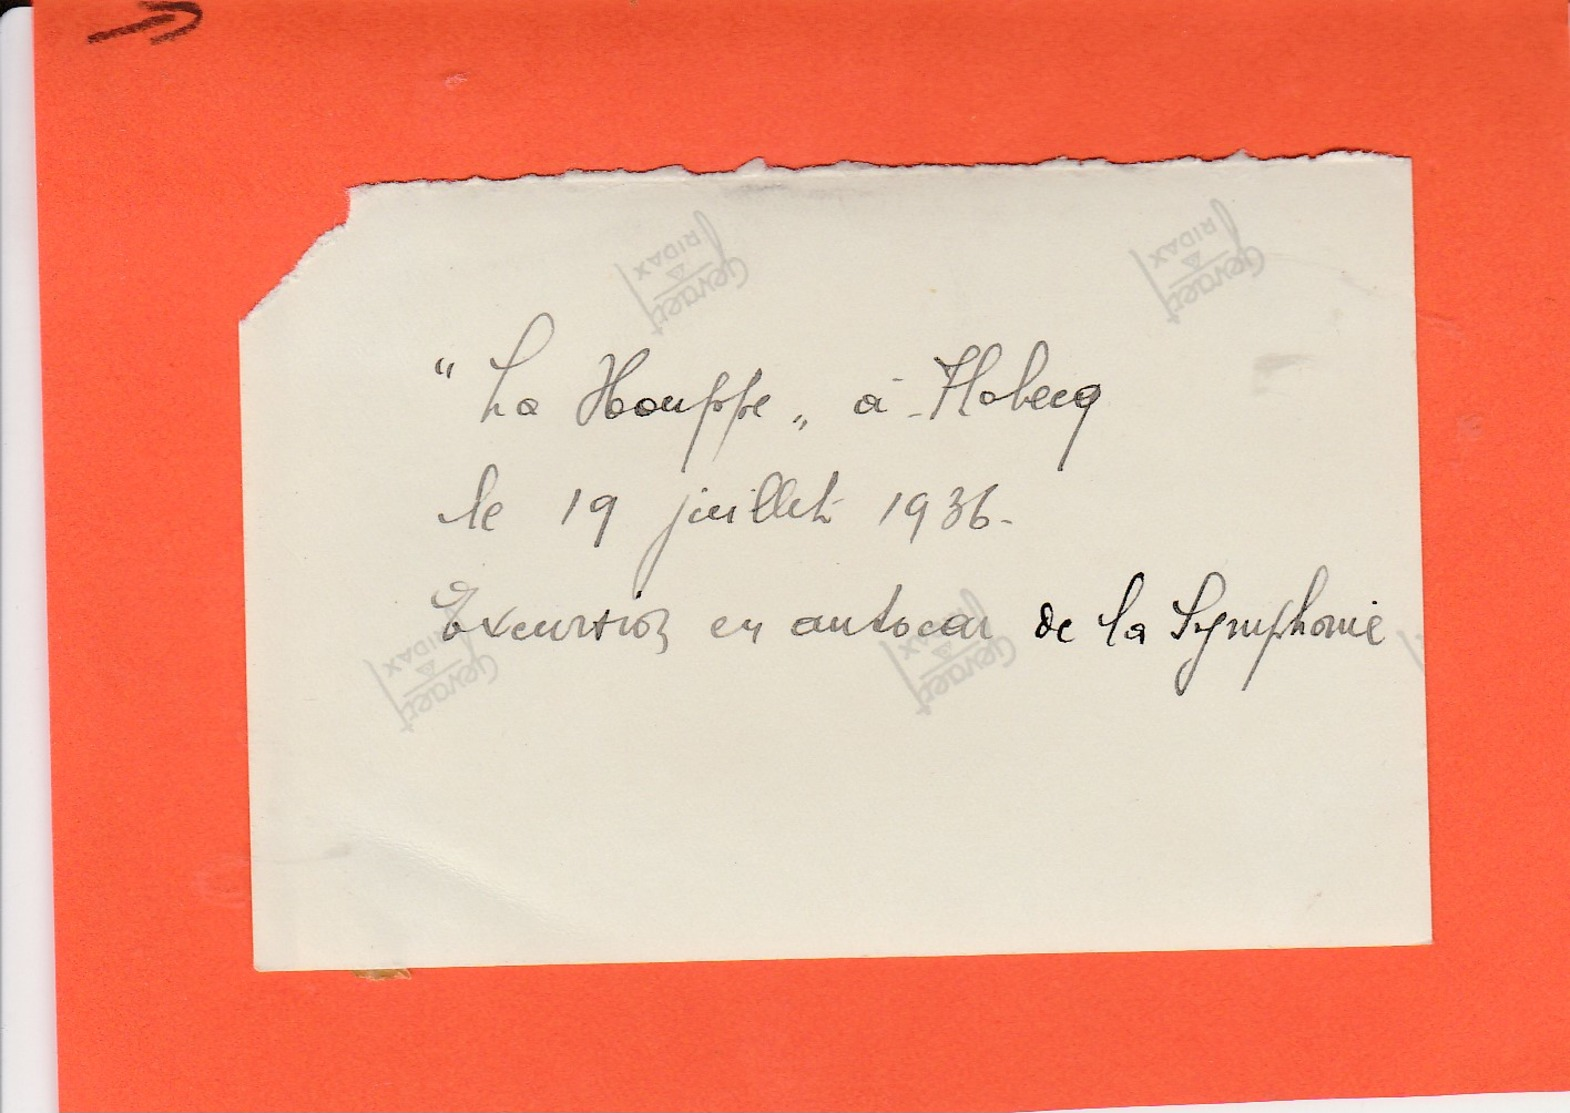 "La Houppe" à Flobecq
le 19 juillet 1936.
Excursion en autocar de la Symphonie
Gevaert
RIDAX
Gevaert
RIDAX
Gevaert
RIDAX
Gevaert
RIDAX